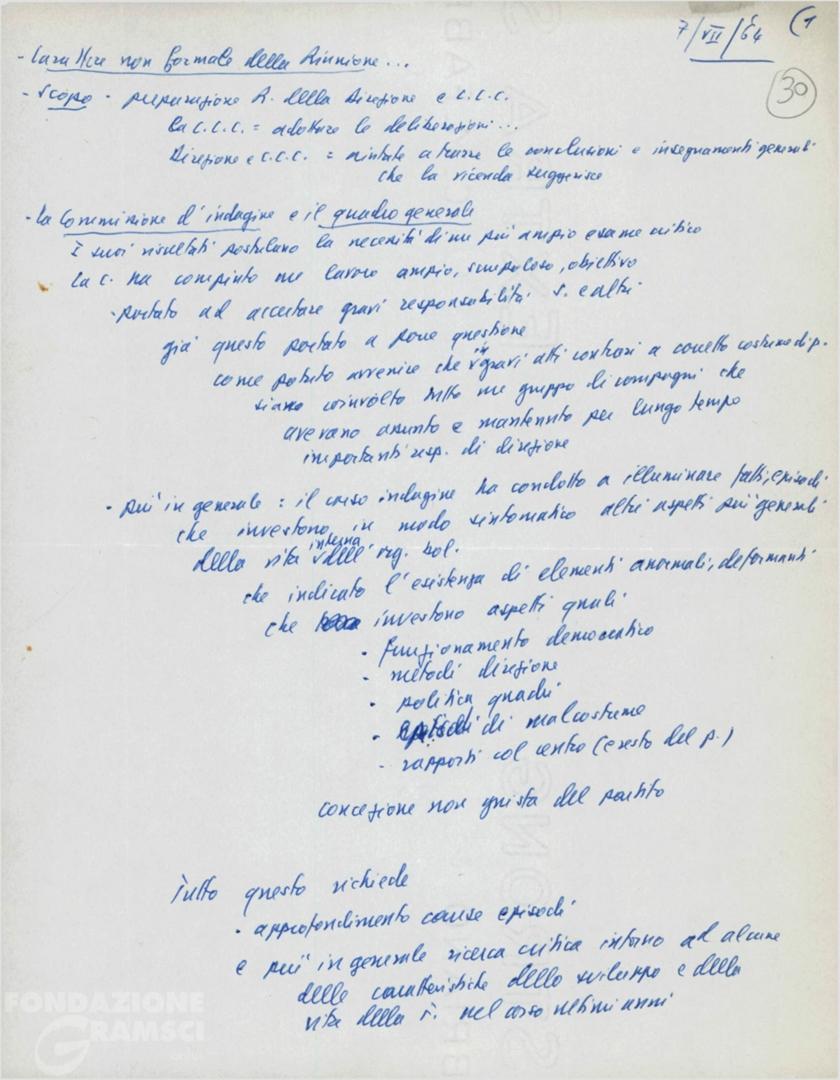 7/VII/64 (1
30
- Carattere non formale della Riunione...
- Scopo - preparazione R. della Direzione e C.C.C.
La C.C.C. = adottare le deliberazioni...
Direzione e C.C.C. = aiutate a trarre le conclusioni e insegnamenti generali
che la vicenda suggerisce
- La Commissione d'indagine e il quadro generale
I suoi risultati postulano la necessità di un più ampio esame critico
La C. ha compiuto un lavoro ampio, scrupoloso, obiettivo
- portato ad accertare gravi responsabilità S. e altri
già questo portato a porre questione
come potuto avvenire che in gravi atti contrari a corretto costume di p.
siano coinvolto tutto un gruppo di compagni che
avevano assunto e mantenuto per lungo tempo
importanti resp. di direzione
- più in generale : il corso indagine ha condotto a illuminare fatti, episodi
che investono in modo sintomatico altri aspetti più generali
della vita interna dell'org. bol.
che indicato l'esistenza di elementi anormali, deformanti
che investono aspetti quali
- funzionamento democratico
- metodi direzione
- politica quadri
- episodi di malcostume
- rapporti col centro (e resto del p.)
concezione non giusta del partito
Tutto questo richiede
- approfondimento cause episodi
e più in generale ricerca critica intorno ad alcune
delle caratteristiche dello sviluppo e della
vita della F. nel corso ultimi anni
FONDAZIONE
GRAMSCI